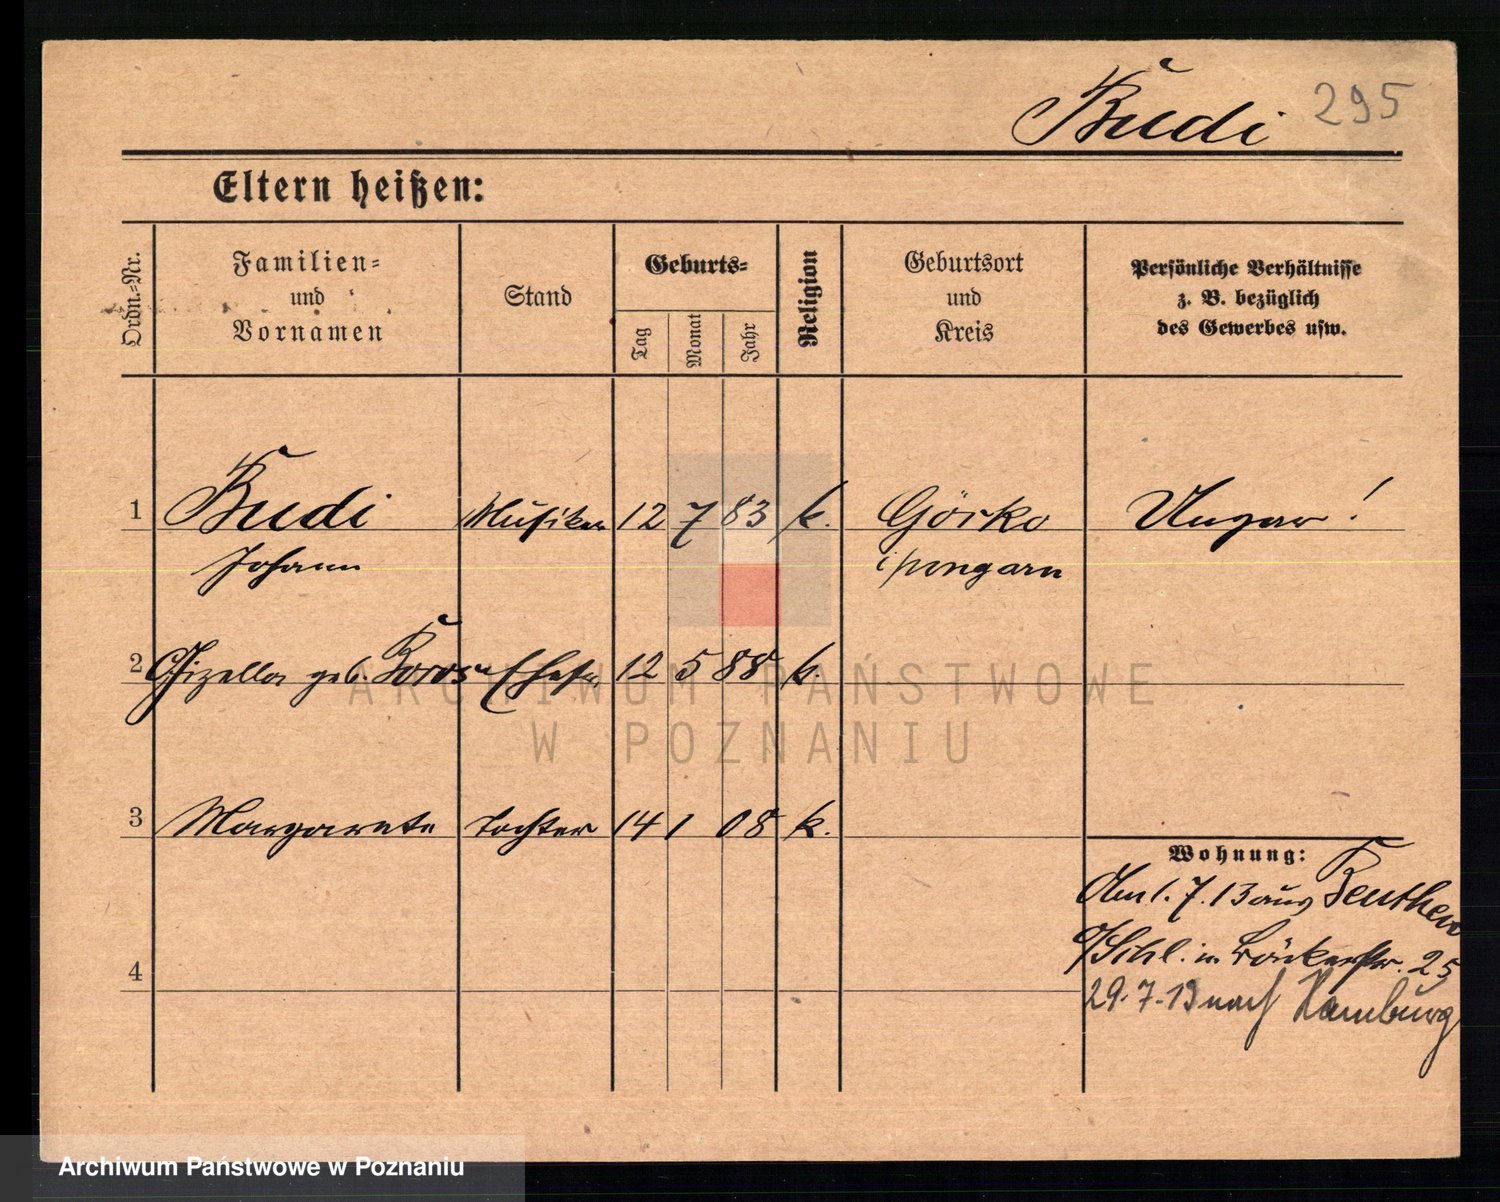 Budi 295
Eltern heißen:
Ordn.-Nr.
Familien-
und
Vornamen
Stand
Geburts-
Tag
Monat
Jahr
Religion
Geburtsort
und
Kreis
Persönliche Verhältnisse
z. B. bezüglich
des Gewerbes usw.
1 Budi Musiker 12 7 83 k. Ungar!
Johann
2 Gizella geb. Ehefr. 12 5 88 k.
ARCHIWUM PAŃSTWOWE
W POZNANIU
3 Margarete Tochter 14 1 08 k.
Wohnung:
Am 1.7.13 aus Beuthen
O/Schl. in 25
4
29.7.13 nach Hamburg
Archiwum Państwowe w Poznaniu